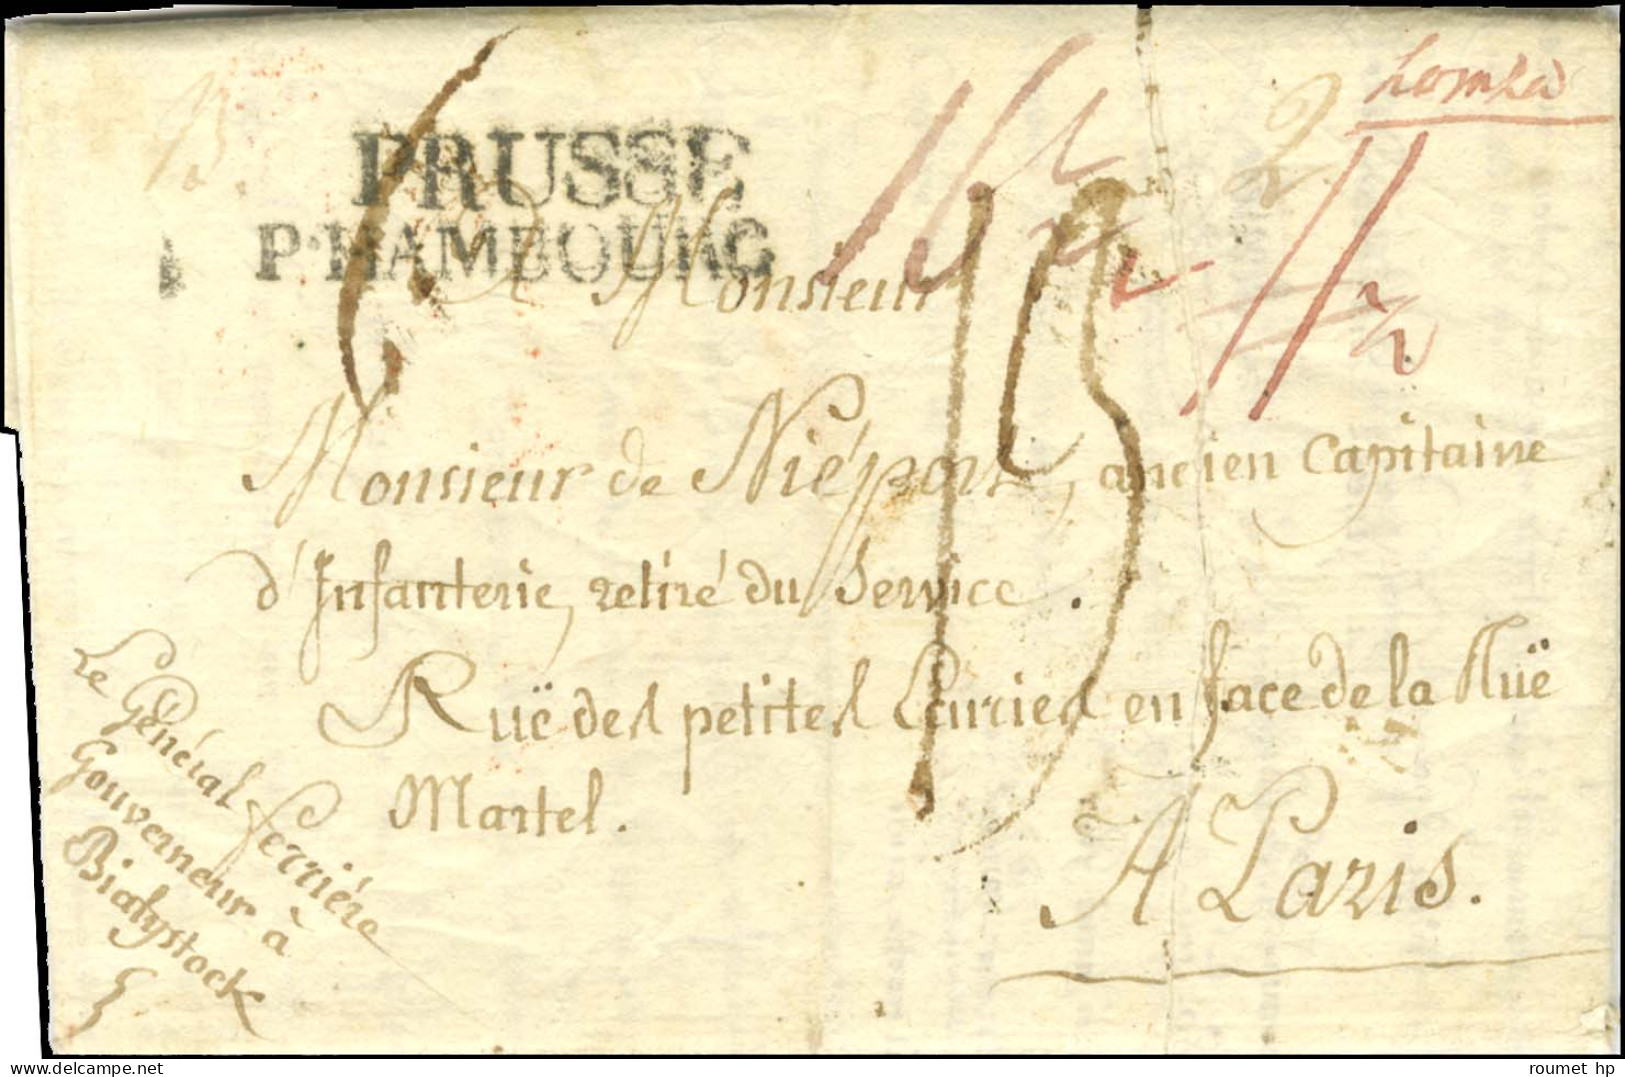 Lomza
PRUSSE
P.HAMBOURG
A Monsieur
Monsieur de Niéport, ancien Capitaine
d'Infanterie, retiré du Service.
Ruë des petites Ecuries en face de la Ruë
Martel.
A Paris.
Le Général Ferriére
Gouverneur à
Bialystock
roumet hp